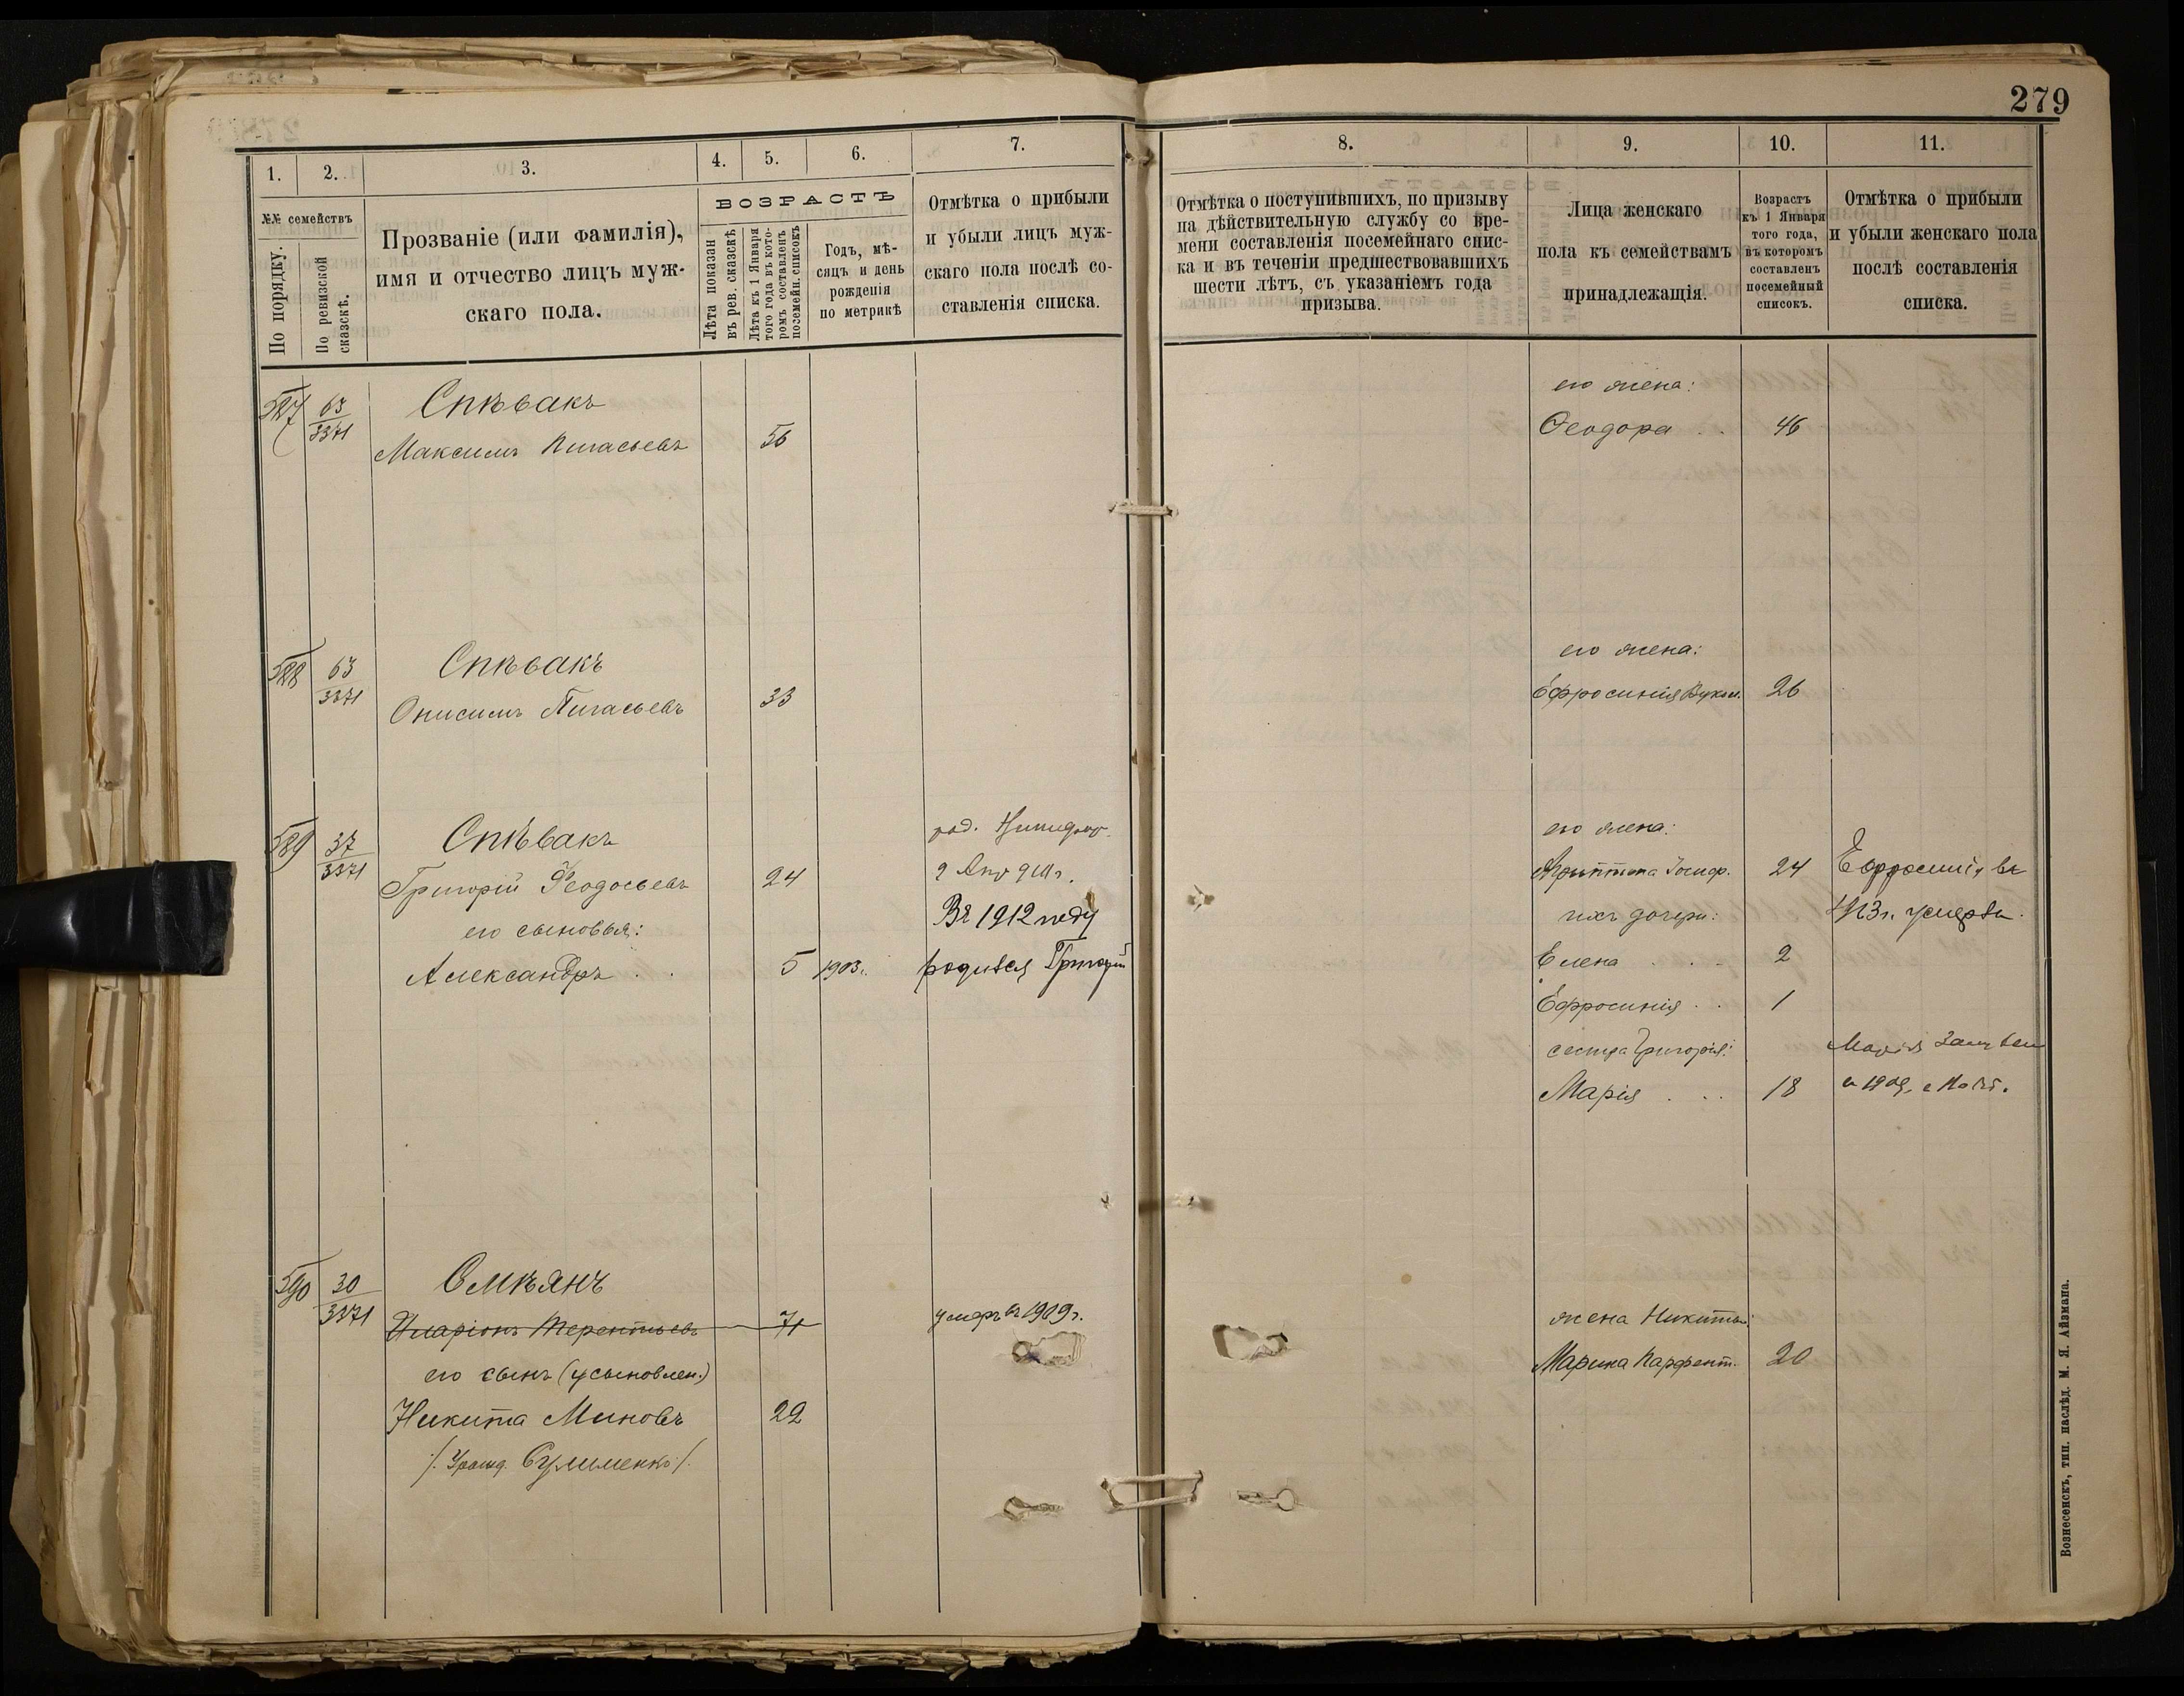 279
1. 2. 3. 4. 5. 6. 7. 8. 9. 10. 11.
№№ семействъ
По порядку.
По ревизской сказскѣ.
Прозваніе (или фамилія),
имя и отчество лицъ муж-
скаго пола.
ВОЗРАСТЪ
Лѣта показан
въ рев. сказскѣ
Лѣта къ 1 Января
того года въ кото-
ромъ составленъ
посемейн. списокъ
Годъ, мѣ-
сяцъ и день
рожденія
по метрикѣ
Отмѣтка о прибыли
и убыли лицъ муж-
скаго пола послѣ со-
ставленія списка.
Отмѣтка о поступившихъ, по призыву
на дѣйствительную службу со вре-
мени составленія посемейнаго спис-
ка и въ теченіи предшествовавшихъ
шести лѣтъ, съ указаніемъ года
призыва.
Лица женскаго
пола къ семействамъ
принадлежащія.
Возрастъ
къ 1 Января
того года,
въ которомъ
составленъ
посемейный
списокъ.
Отмѣтка о прибыли
и убыли женскаго пола
послѣ составленія
списка.
587 63/3371 Спѣвакъ
его жена:
Максимъ Пигасьевъ 56
Ѳеодора . . 46
588 63/3371 Спѣвакъ
его жена:
Онисимъ Пигасьевъ 33
Ефросинія 26
589 37/3371 Спѣвакъ
род.
его жена:
Григорій Ѳеодосьевъ 24
2 Апр 911 г.
24 Ефросинія въ
его сыновья:
Въ 1912 году
ихъ дочери:
1913 г. умерла.
Александръ . . 5 1903 г.
родился Григорій
Елена . . . 2
Ефросинія . . 1
сестра Григорія:
Марія
Марія . . . 18
в 1909,
590 30/3371 Омѣянъ
Иларіонъ Терентьевъ 71
умеръ въ 1909 г.
жена Никиты:
его сынъ (усыновлен.)
Марина Парфент. 20
Никита Миновъ 22
/. Урожд. Сулименко ./
Вознесенскъ, тип. наслѣд. М. Я. Айзмана.